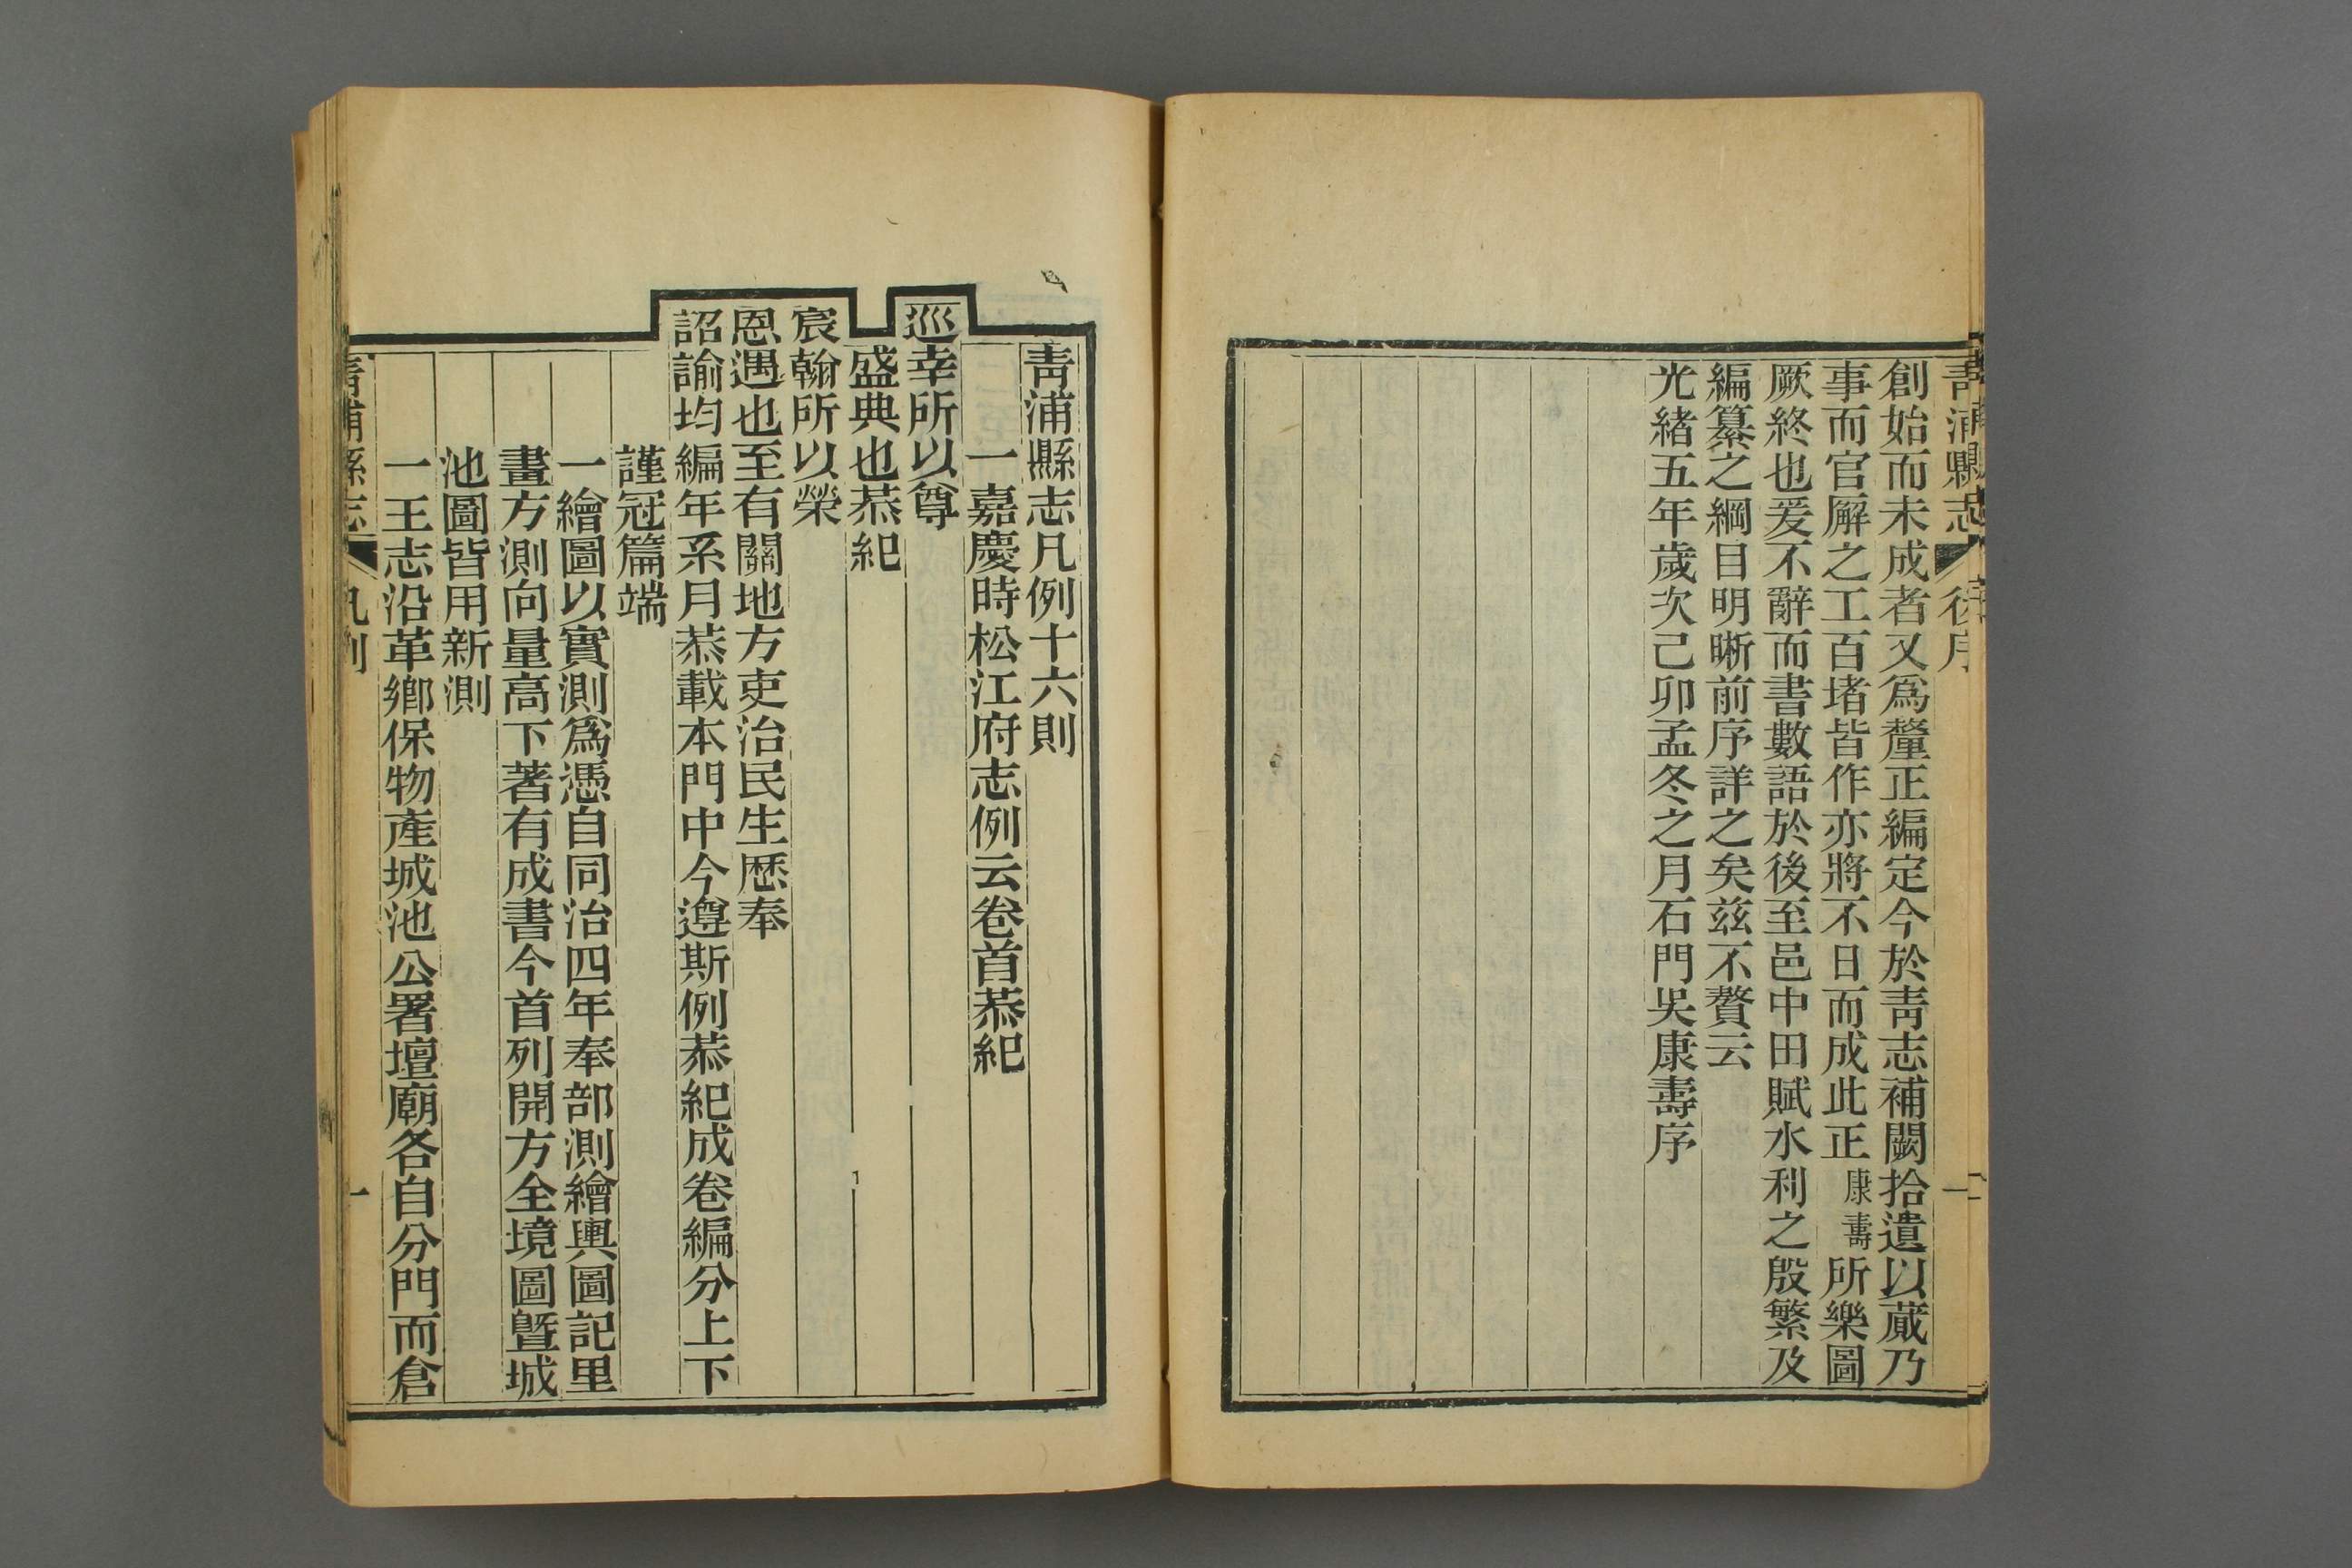 青浦縣志
後序
創始而未成者又爲釐正編定今於靑志補闕拾遺以蕆乃
事而官廨之工百堵皆作亦將不日而成此正康壽所樂圖
厥終也爰不辭而書數語於後至邑中田賦水利之殷繁及
編纂之綱目明晰前序詳之矣茲不贅云
光緒五年歲次己卯孟冬之月石門吳康壽序
靑浦縣志凡例十六則
一嘉慶時松江府志例云卷首恭紀
巡幸所以尊
盛典也恭紀
宸翰所以榮
恩遇也至有關地方吏治民生歷奉
詔諭均編年系月恭載本門中今遵斯例恭紀成卷編分上下
謹冠篇端
一繪圖以實測爲憑自同治四年奉部測繪輿圖記里
畫方測向量高下著有成書今首列開方全境圖暨城
池圖皆用新測
一王志沿革鄉保物產城池公署壇廟各自分門而倉
青浦縣志
凡例
一